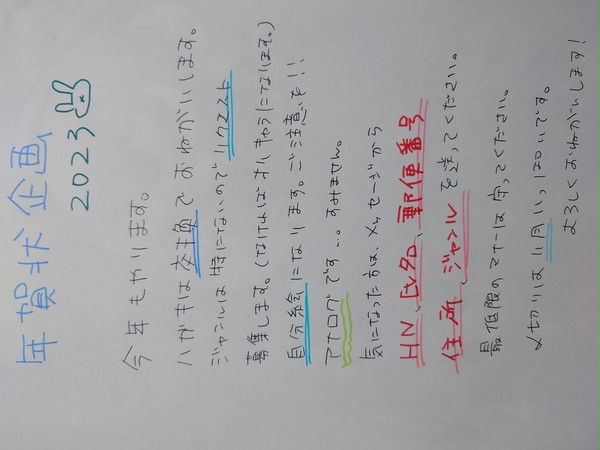 年賀状企画
2023
今年もやります。
ハガキは でおねがいします。
ジャンルは特にないのでリクエスト
募集します。(なければオリキャラになります。)
自分絵になります。ご注意を!!
アナログです…。すみません。
気になった方は、メッセージから
HN、氏名、郵便番号
住所、ジャンルを送ってください。
最低限のマナーは守ってください。
〆切りは11月いっぱいです。
よろしくおねがいします!